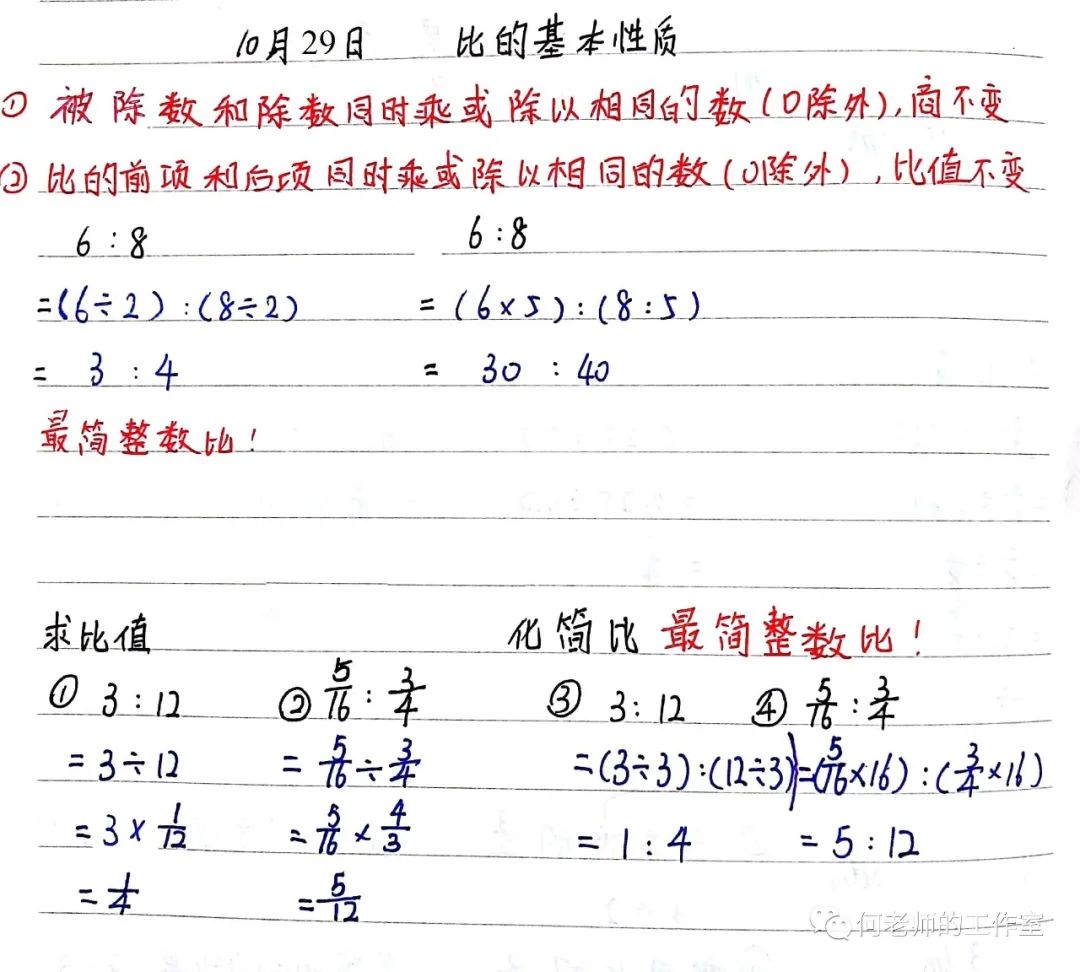 10月29日 比的基本性质
① 被除数和除数同时乘或除以相同的数(0除外),商不变
② 比的前项和后项同时乘或除以相同的数(0除外),比值不变
6:8 6:8
=(6÷2):(8÷2) =(6×5):(8:5)
= 3:4 = 30:40
最简整数比!
求比值 化简比 最简整数比!
① 3:12 ② 5/16:3/4 ③ 3:12 ④ 5/16:3/4
=3÷12 =5/16÷3/4 =(3÷3):(12÷3) =(5/16×16):(3/4×16)
=3×1/12 =5/16×4/3 =1:4 =5:12
=1/4 =5/12
何老师的工作室